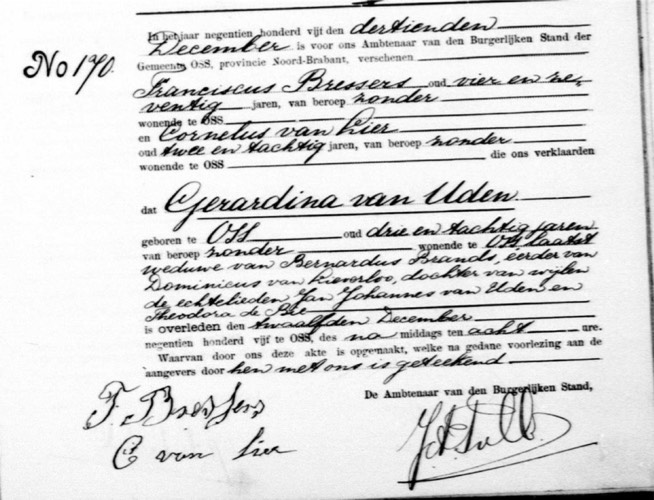 In het jaar negentien honderd vijf den dertienden
December is voor ons Ambtenaar van den Burgerlijken Stand der
Gemeente OSS, provincie Noord-Brabant, verschenen
No 170.
Franciscus Bressers oud vier en ze-
ventig jaren, van beroep zonder
wonende te OSS
en Cornelus van Lier
oud twee en tachtig jaren, van beroep zonder
wonende te OSS die ons verklaarden
dat Gerardina van Uden
geboren te OSS oud drie en tachtig jaren
van beroep zonder wonende te OSS, laatst
weduwe van Bernardus Brands, eerder van
Dominicus van Lieverloo, dochter van wijlen
de echtelieden Jan Johannes van Uden en
Theodora de Bie
is overleden den twaalfden December
negentien honderd vijf te OSS, des na middags ten acht ure.
Waarvan door ons deze akte is opgemaakt, welke na gedane voorlezing aan de
aangevers door hen met ons is geteekend
De Ambtenaar van den Burgerlijken Stand,
F. Bressers
C van Lier